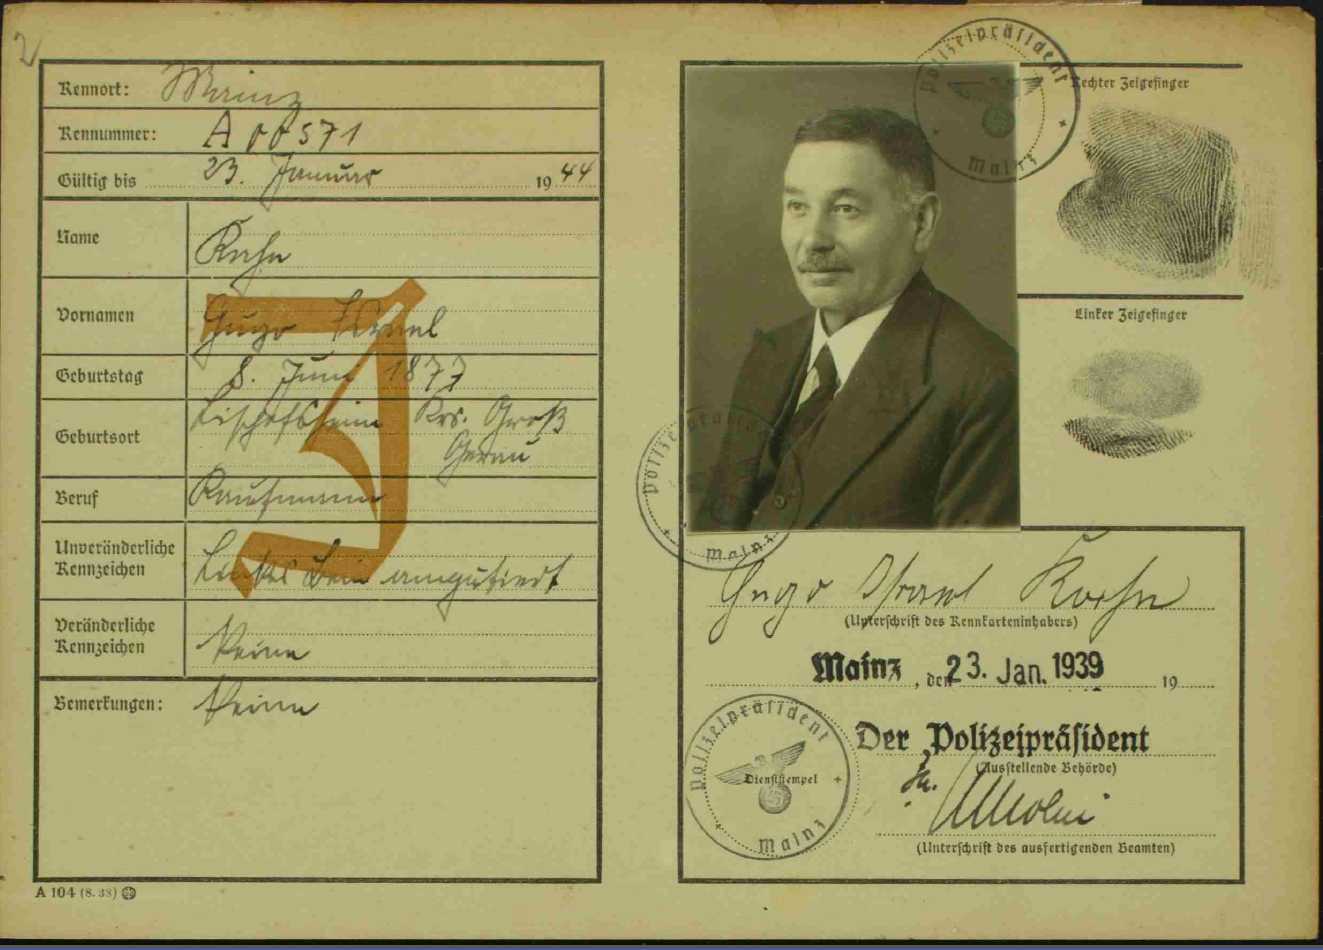 2
Kennort: Mainz
Kennummer: A 00571
Gültig bis 23. Januar 1944
Name Kahn
Vornamen Hugo Israel
Geburtstag 8. Juni 1877
Geburtsort Bischofsheim Krs. Groß
Gerau
Beruf Kaufmann
Unveränderliche
Kennzeichen Linkes Bein amputiert
Veränderliche
Kennzeichen Keine
Bemerkungen: Keine
J
A 104 (8. 38)
Polizeipräsident
Mainz
Rechter Zeigefinger
Linker Zeigefinger
Polizeipräsident
Mainz
Hugo Israel Kahn
(Unterschrift des Kennkarteninhabers)
Mainz, den 23. Jan. 1939 19
Der Polizeipräsident
(Ausstellende Behörde)
Polizeipräsident
Dienststempel
Mainz
(Unterschrift des ausfertigenden Beamten)